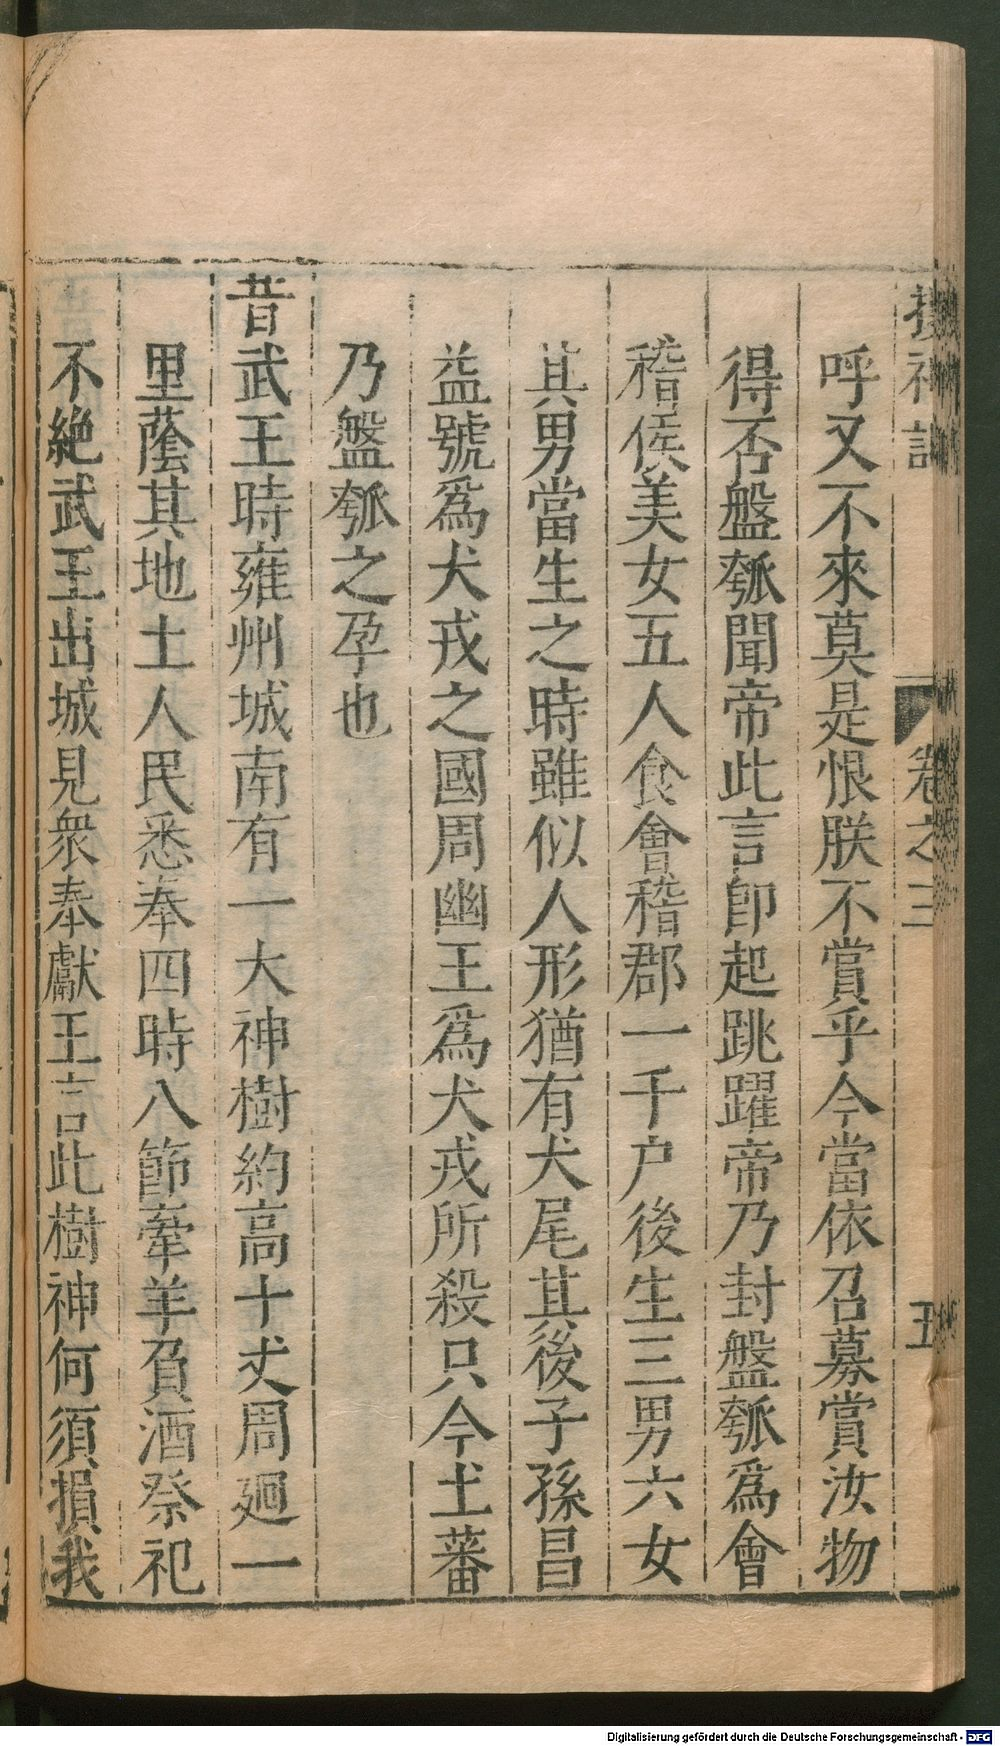 搜神記 卷之三 五
呼又不來莫是恨朕不賞乎今當依召募賞汝物
得否盤瓠聞帝此言卽起跳躍帝乃封盤瓠爲會
稽侯美女五人食會稽郡一千戶後生三男六女
其男當生之時雖似人形猶有犬尾其後子孫昌
益號爲犬戎之國周幽王爲犬戎所殺只今土蕃
乃盤瓠之孕也
昔武王時雍州城南有一大神樹約高十丈周廻一
里蔭其地土人民悉奉四時八節牽羊負酒祭祀
不絶武王出城見衆奉獻王言此樹神何須損我
Digitalisierung gefördert durch die Deutsche Forschungsgemeinschaft - DFG